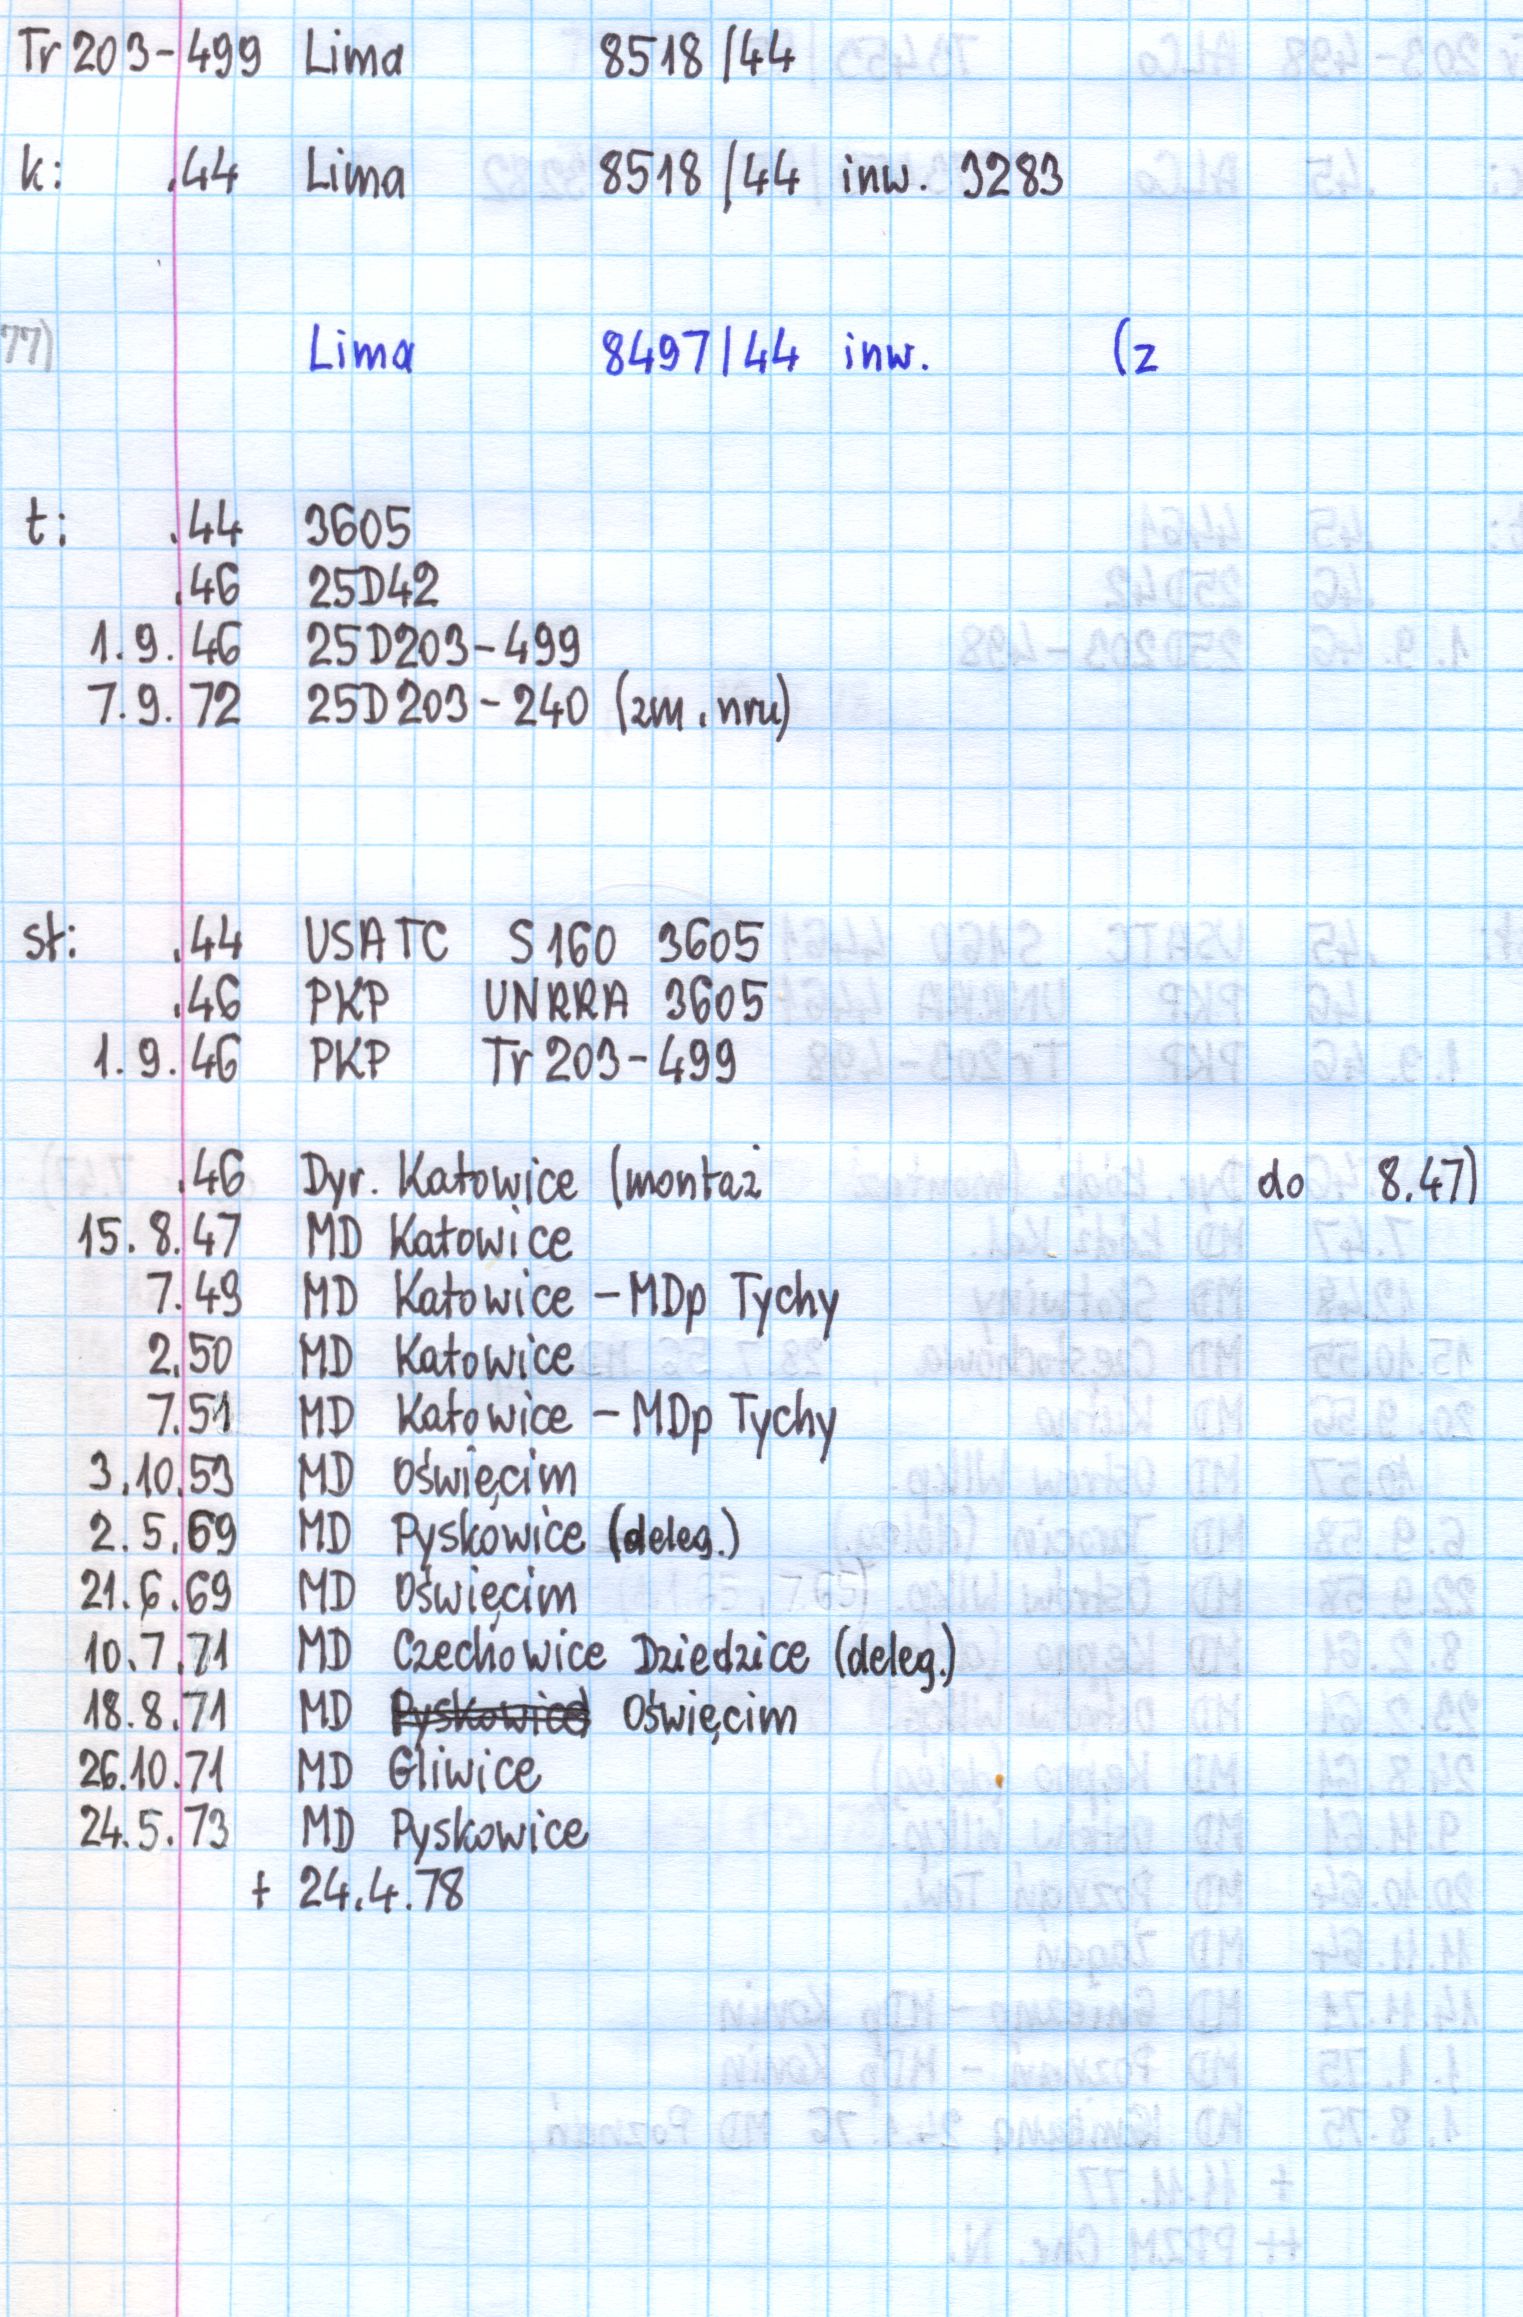 Tr 203-499 Lima 8518/44
k: .44 Lima 8518/44 inw. 3283
77) Lima 8497/44 inw. (z
t: .44 3605
.46 25D42
1.9.46 25D203-499
7.9.72 25D203-240 (zm. nru)
st: .44 USATC S160 3605
.46 PKP UNRRA 3605
1.9.46 PKP Tr 203-499
.46 Dyr. Katowice (montaż do 8.47)
15.8.47 MD Katowice
7.49 MD Katowice - MDp Tychy
2.50 MD Katowice
7.51 MD Katowice - MDp Tychy
3.10.53 MD Oświęcim
2.5.69 MD Pyskowice (deleg.)
21.6.69 MD Oświęcim
10.7.71 MD Czechowice Dziedzice (deleg.)
18.8.71 MD Pyskowice Oświęcim
26.10.71 MD Gliwice
24.5.73 MD Pyskowice
+ 24.4.78